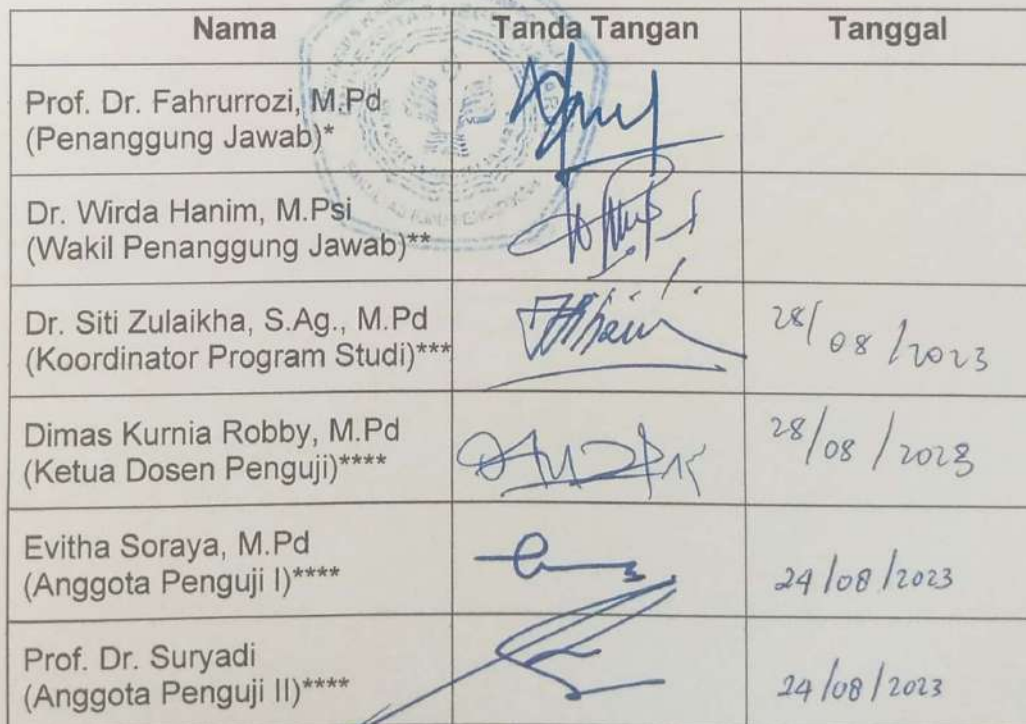 Nama Tanda Tangan Tanggal
Prof. Dr. Fahrurrozi, M.Pd
(Penanggung Jawab)*
Dr. Wirda Hanim, M.Psi
(Wakil Penanggung Jawab)**
Dr. Siti Zulaikha, S.Ag., M.Pd
(Koordinator Program Studi)*** 28/08/2023
Dimas Kurnia Robby, M.Pd
(Ketua Dosen Penguji)**** 28/08/2023
Evitha Soraya, M.Pd
(Anggota Penguji I)**** 24/08/2023
Prof. Dr. Suryadi
(Anggota Penguji II)**** 24/08/2023